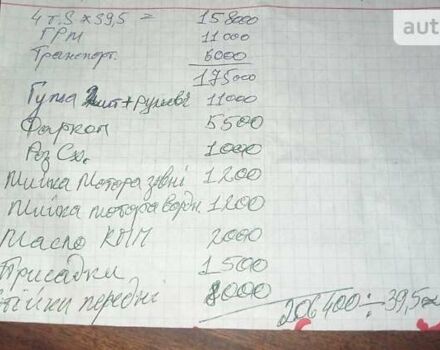 4 т.$ x 39,5 = 158000
ГРМ 11000
Транспорт. 6000
175000
Гума 2шт + рулеві 11000
Фаркоп 5500
Роз Сх. 1000
Мийка Мотора зовні 1200
Мийка мотора 1200
Масло КПП 2000
Присадки 1500
передні 8000
206400 ÷ 39,5 =
auto